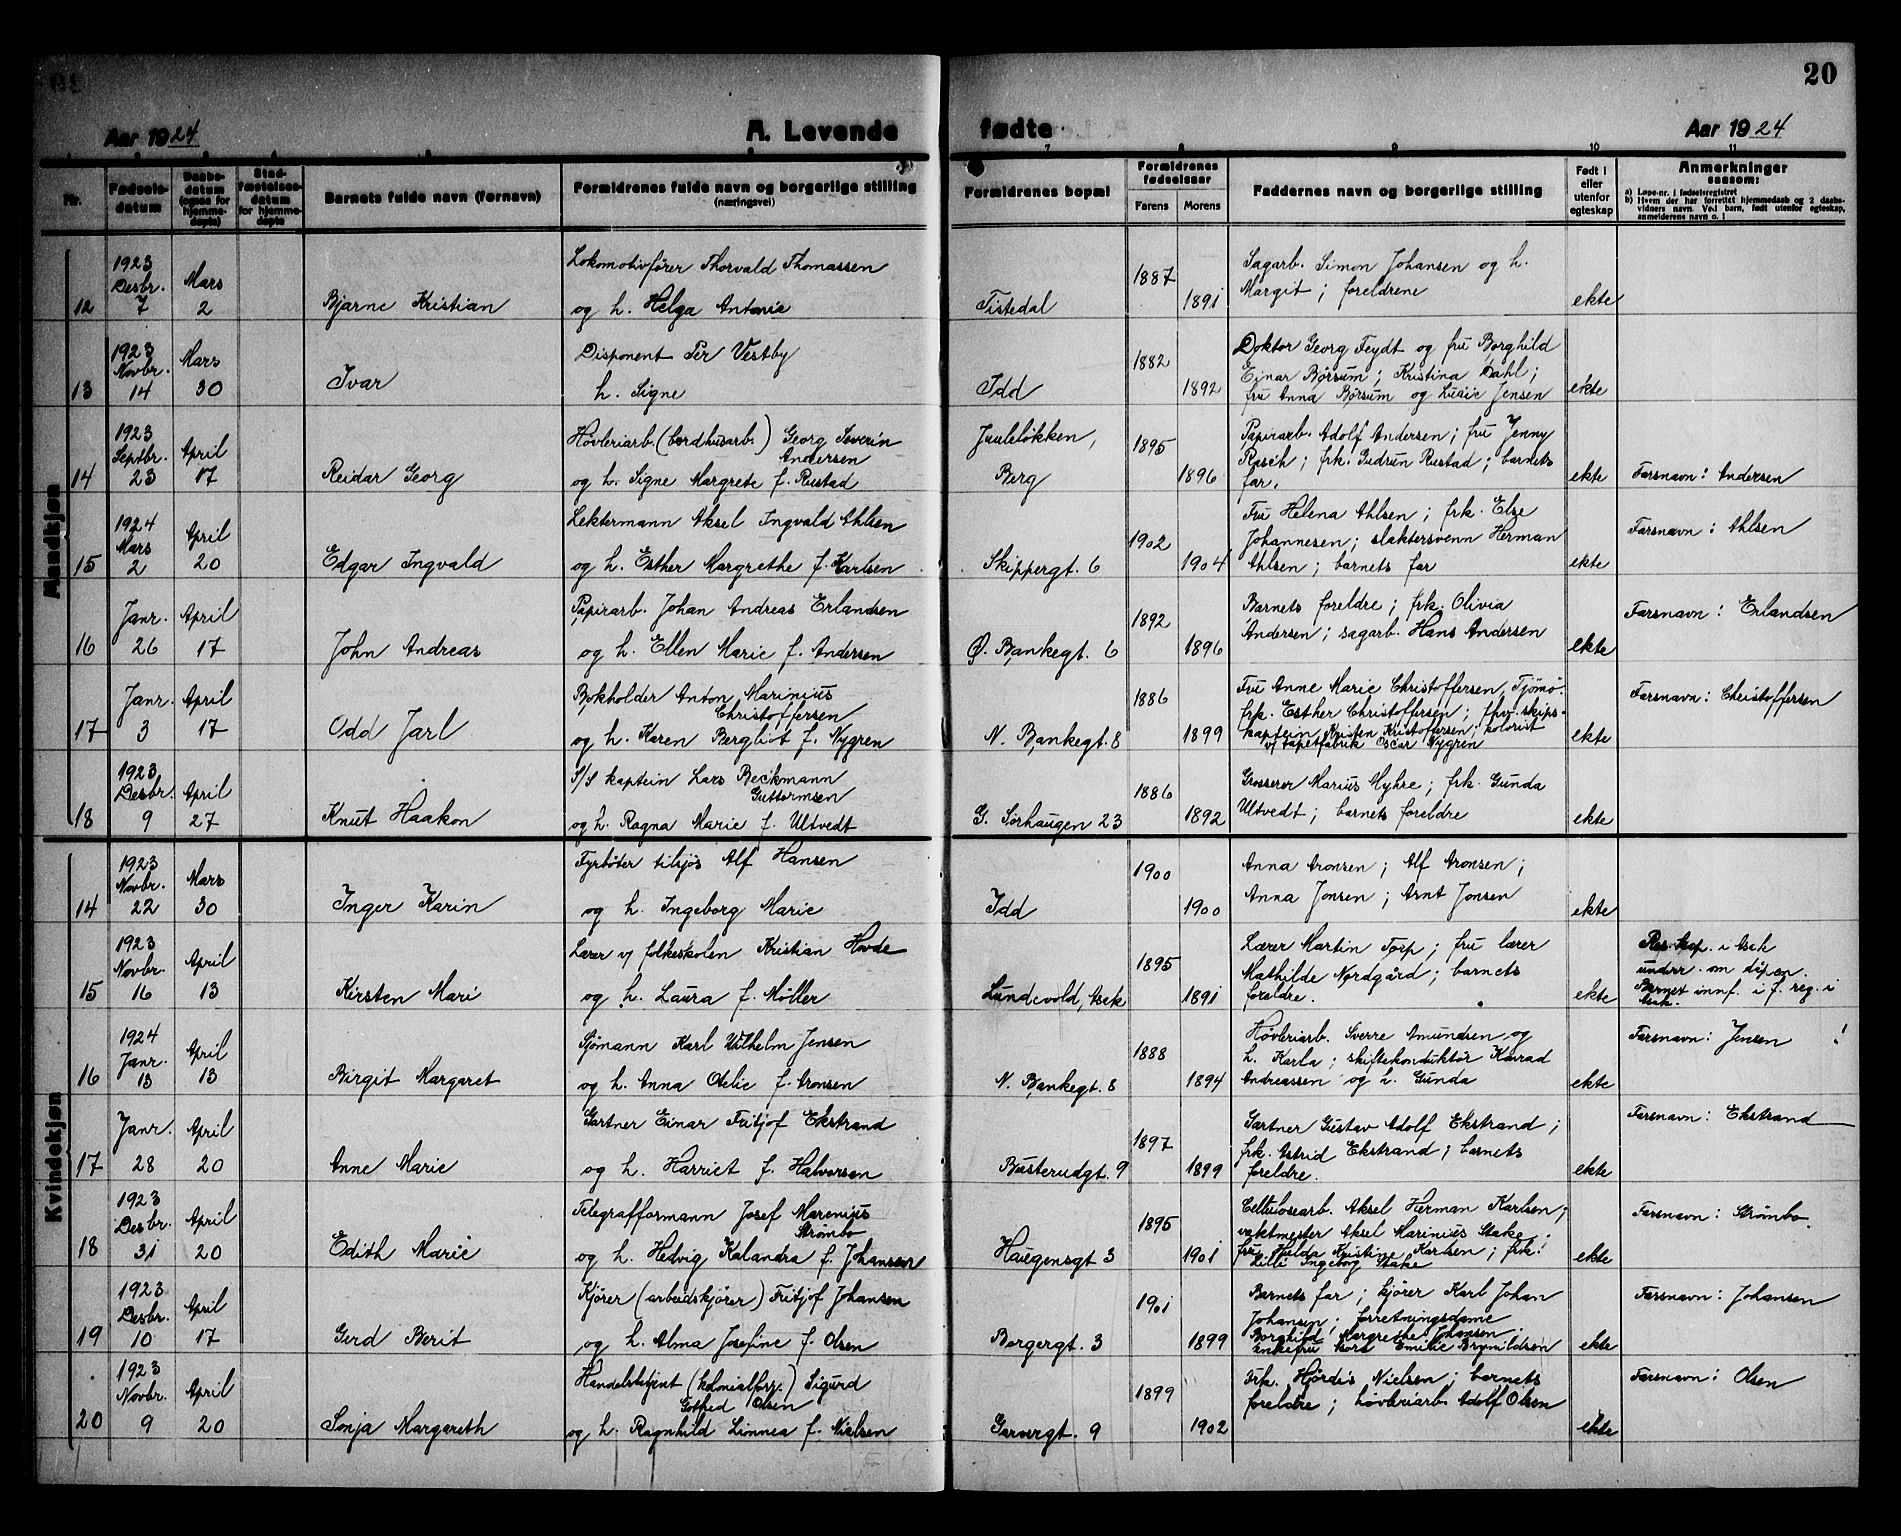 20
Aar 1924 A. Levende fødte Aar 1924
7 8 9 10 11
Nr. Fødsels-datum Daabs-datum (ogsaa for hjemme-døpte) Stad-fæstelses-datum for hjemme-døpte Barnets fulde navn (fornavn) Forældrenes fulde navn og borgerlige stilling (næringsvei) Forældrenes bopæl Forældrenes fødselsaar Farens Morens Faddernes navn og borgerlige stilling Født i eller utenfor egteskap Anmerkninger saasom:
a) Løpe-nr. i fødselsregistret
b) Hvem der har forrettet hjemmedaab og 2 daabs-vidners navn. Ved barn, født utenfor egteskap, anmelderens navn o. l
Mandkjøn
12 1923 Desbr. 7 Mars 2 Bjarne Kristian Lokomotivfører Thorvald Thomassen og h. Helga Antonie Tistedal 1887 1891 Sagarb. Simon Johansen og h. Margit; foreldrene ekte
13 1923 Novbr. 14 Mars 30 Ivar Disponent Per Vestby h. Signe Idd 1882 1892 Doktor Georg Feydt og fru Borghild Einar Børsum; Kristina Dahl; fru Anna Børsum og Lucie Jensen ekte
14 1923 Septbr. 23 April 17 Reidar Georg Høvleriarb. (bordhusarb.) Georg Severin Andersen og h. Signe Margrete f. Rustad Juuleløkken, Berg 1895 1896 Papirarb. Adolf Andersen; fru Jenny Rasch; frk. Gudrun Rustad; barnets far. ekte Farsnavn: Andersen
15 1924 Mars 2 April 20 Edgar Ingvald Lektermann Aksel Ingvald Ahlsen og h. Esther Margrethe f. Karlsen Skippergt. 6 1902 1904 Fru Helena Ahlsen; frk. Else Johannesen; slaktersvenn Herman Ahlsen; barnets far ekte Farsnavn: Ahlsen
16 Janr. 26 April 17 John Andreas Papirarb. Johan Andreas Erlandsen og h. Ellen Marie f. Andersen Ø. Bankegt. 6 1892 1896 Barnets foreldre; frk. Olivia Andersen; sagarb. Hans Andersen ekte Farsnavn: Erlandsen
17 Janr. 3 April 17 Odd Jarl Bokholder Anton Marinius Christoffersen og h. Karen Bergliot f. Nygren N. Bankegt. 8 1886 1899 Fru Anne Marie Christoffersen, Tjømø. frk. Esther Christoffersen; fhv. skips-kaptein Kristen Kristoffersen; kolorist v/ tapetfabrik Oscar Nygren ekte Farsnavn: Christoffersen
18 1923 Desbr. 9 April 27 Knut Haakon S/S kaptein Lars Beckmann Guttormsen og h. Ragna Marie f. Ultvedt G. Sørhaugen 23 1886 1892 Grosserer Marius Myhre; frk. Gunda Ultvedt; barnets foreldre ekte
Kvindekjøn
14 1923 Novbr. 22 Mars 30 Inger Karin Fyrbøter tilsjøs Alf Hansen og h. Ingeborg Marie Idd 1900 1900 Anna Aronsen; Alf Aronsen; Anna Jonsen; Arnt Jonsen ekte
15 1923 Novbr. 16 April 13 Kirsten Mari Lærer v/ folkeskolen Kristian Hovde og h. Laura f. Møller Lundevold, Asak 1895 1891 Lærer Martin Torp; fru lærer Mathilde Nordgård; barnets foreldre. ekte Res. kap. i Asak underr. om dåpen. Barnet innf. i f. reg. i Asak.
16 1924 Janr. 13 April 13 Birgit Margaret Sjømann Karl Wilhelm Jensen og h. Anna Otelie f. Aronsen N. Bankegt. 8 1888 1894 Høvleriarb. Sverre Amundsen og h. Karla; skiftekonduktør Konrad Andreassen og h. Gunda ekte Farsnavn: Jensen
17 Janr. 28 April 20 Anne Marie Gartner Einar Fritjof Ekstrand og h. Harriet f. Halvorsen Busterudgt. 9 1897 1899 Gartner Gustav Adolf Ekstrand; frk. Astrid Ekstrand; barnets foreldre. ekte Farsnavn: Ekstrand
18 1923 Desbr. 31 April 20 Edith Marie Telegrafformann Josef Marenius Strømbo og h. Hedvig Kalandra f. Johansen Haugensgt 3 1895 1901 Cellulosearb. Aksel Herman Karlsen; vaktmester Aksel Marinius Stake; fru Hilda Kristine Karlsen; frk. Lilli Ingeborg Stake ekte Farsnavn: Strømbo.
19 1923 Desbr. 10 April 17 Gerd Berit Kjører (arbeidskjører) Fritjof Johansen og h. Alma Josefine f. Olsen Borgergt. 3 1901 1899 Barnets far; kjører Karl Johan Johansen; forretningsdame Borghild Margrethe Johansen; enkefru Thora Emilie Brynildsen ekte Farsnavn: Johansen
20 1923 Novbr. 9 April 20 Sonja Margareth Handelsbetjent (kolonialforr.) Sigurd Gothed Olsen og h. Ragnhild Linnea f. Nielsen Garvergt. 9 1899 1902 Frk. Hjørdis Nielsen; barnets foreldre; høvleriarb. Adolf Olsen ekte Farsnavn: Olsen